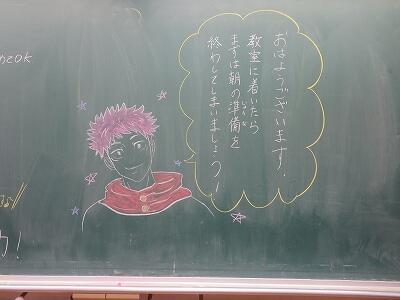 おはようございます.
教室に着いたら
まずは朝の準備を
じゅんび
終わしてしまいましょう!
OK